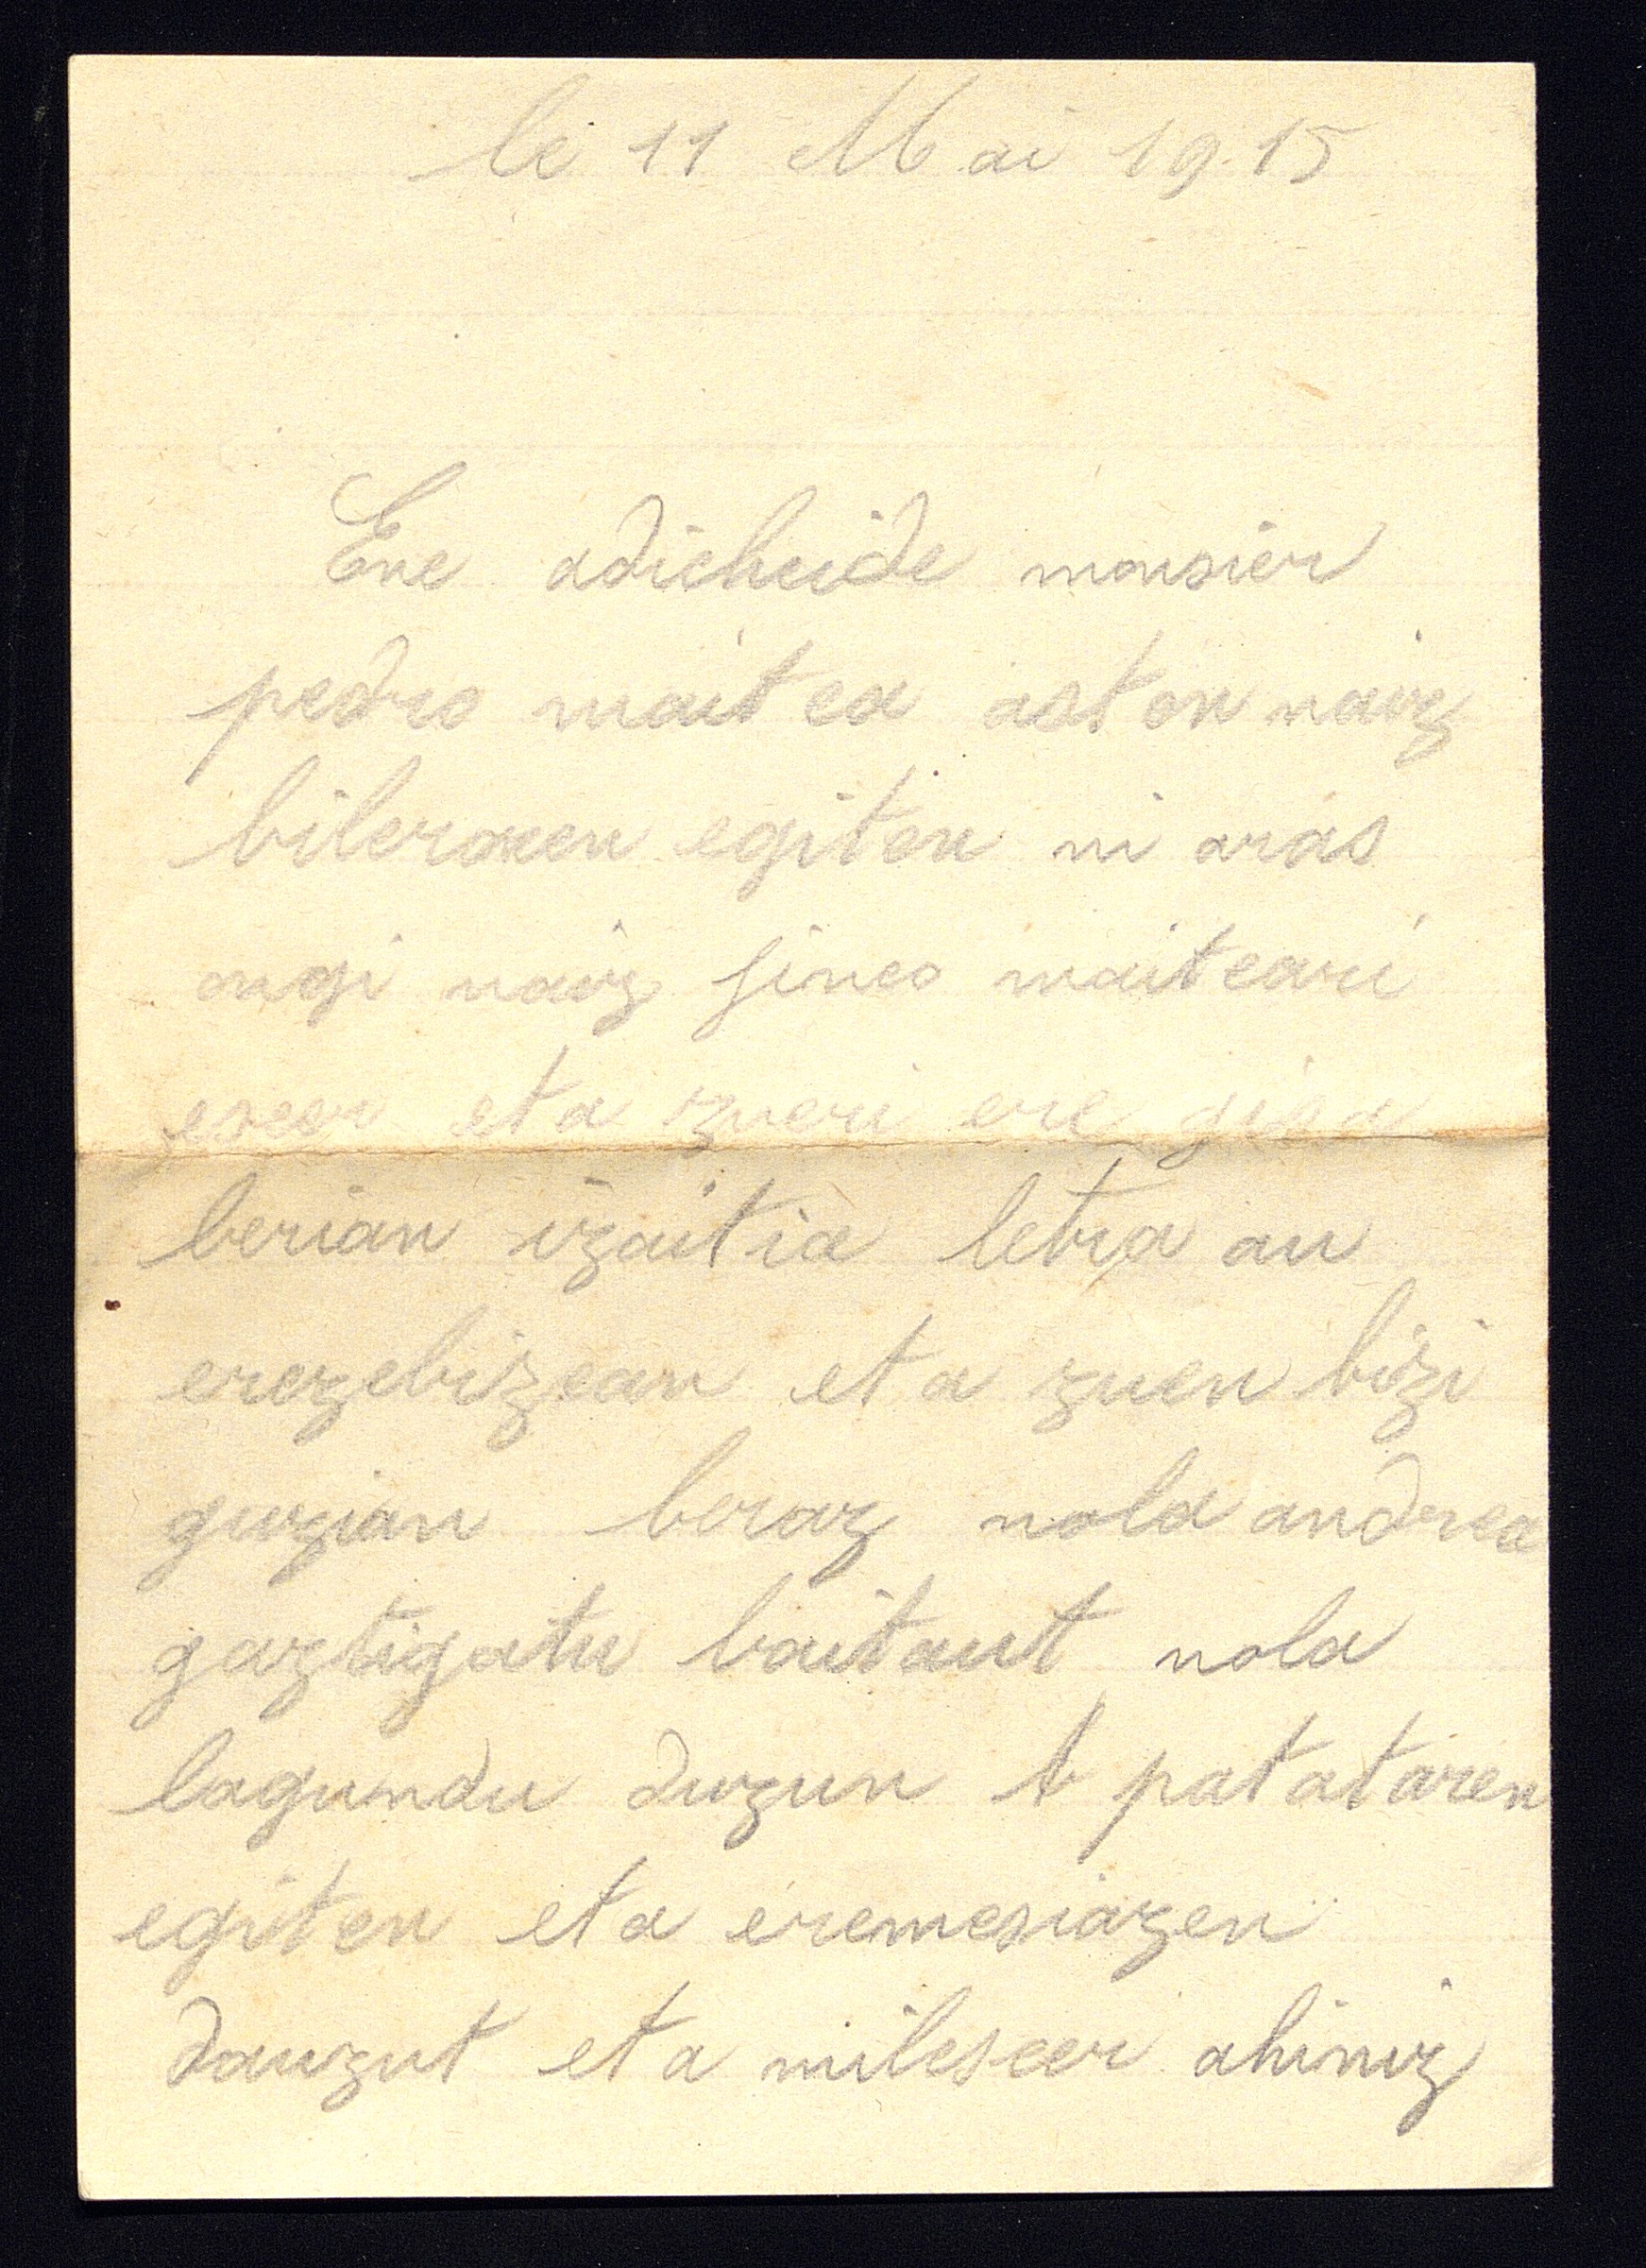 le 11 Mai 1915
Ene adicheide monsier
pedro maitea asten naiz
bileraxen egiten ni aras
ongi naiz jinco maiteari
eseer eta zueri ere gisa
berian izaitia letra au
erezebizean eta zuen bizi
guzian beraz nola andrea
gaztigatu baitaut nola
lagundu duzun patataren
egiten eta eremesiazen
dauzut eta mileseer ahiniz